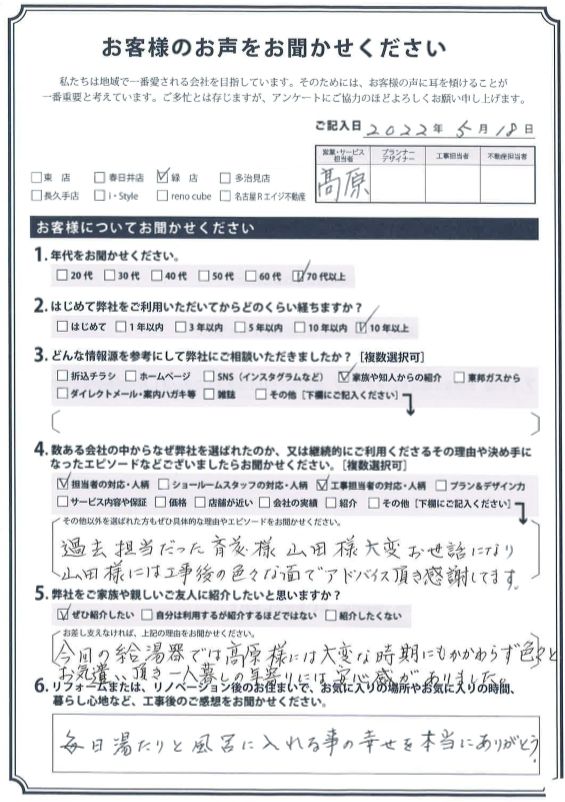 お客様のお声をお聞かせください
私たちは地域で一番愛される会社を目指しています。そのためには、お客様の声に耳を傾けることが
一番重要と考えています。ご多忙とは存じますが、アンケートにご協力のほどよろしくお願い申し上げます。
ご記入日 2022年 5月 18日
営業・サービス担当者 プランナーデザイナー 工事担当者 不動産担当者
高原
□東 店 □春日井店 ☑緑 店 □多治見店
□長久手店 □i・Style □reno cube □名古屋Rエイジ不動産
お客様についてお聞かせください
1. 年代をお聞かせください。
□20代 □30代 □40代 □50代 □60代 ☑70代以上
2. はじめて弊社をご利用いただいてからどのくらい経ちますか?
□はじめて □1年以内 □3年以内 □5年以内 □10年以内 ☑10年以上
3. どんな情報源を参考にして弊社にご相談いただきましたか?[複数選択可]
□折込チラシ □ホームページ □SNS(インスタグラムなど) ☑家族や知人からの紹介 □東邦ガスから
□ダイレクトメール・案内ハガキ等 □雑誌 □その他[下欄にご記入ください]
4. 数ある会社の中からなぜ弊社を選ばれたのか、又は継続的にご利用くださるその理由や決め手に
なったエピソードなどございましたらお聞かせください。[複数選択可]
☑担当者の対応・人柄 □ショールームスタッフの対応・人柄 ☑工事担当者の対応・人柄 □プラン&デザイン力
□サービス内容や保証 □価格 □店舗が近い □会社の実績 □紹介 □その他[下欄にご記入ください]
その他以外を選ばれた方もぜひ具体的な理由やエピソードをお聞かせください。
過去担当だった 様 山田様大変お世話になり
山田様には工事後の色々な面でアドバイス頂き感謝してます。
5. 弊社をご家族や親しいご友人に紹介したいと思いますか?
☑ぜひ紹介したい □自分は利用するが紹介するほどではない □紹介したくない
お差し支えなければ、上記の理由をお聞かせください。
今回の給湯器では高原様には大変な時期にもかかわらず色々と
お気遣い頂き一人暮しの年寄りには安心感がありました。
6. リフォームまたは、リノベーション後のお住まいで、お気に入りの場所やお気に入りの時間、
暮らし心地など、工事後のご感想をお聞かせください。
毎日湯たりと風呂に入れる事の幸せを本当にありがとう!